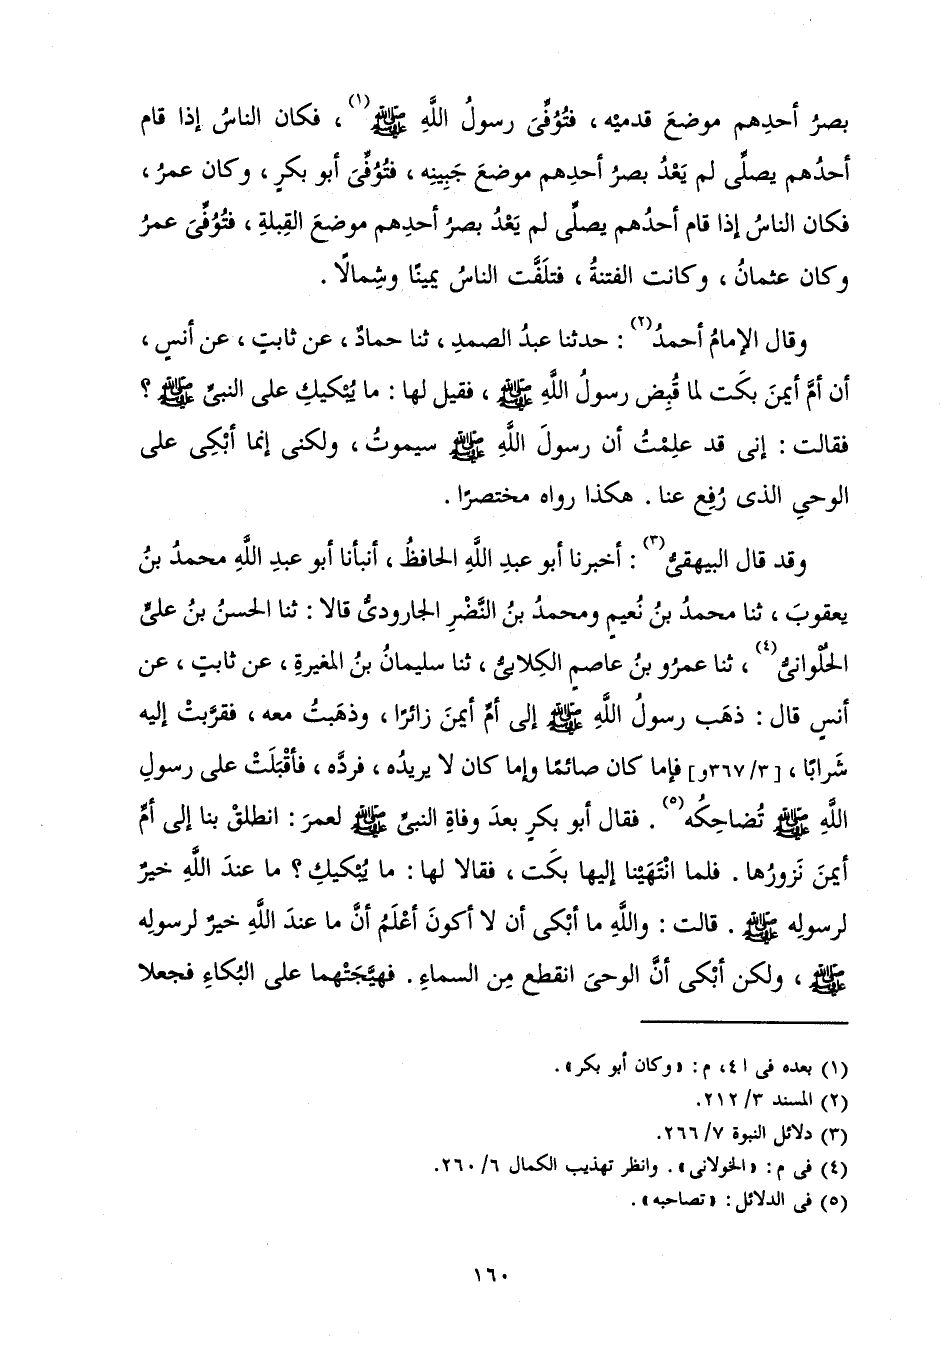 بصرُ أحدِهم موضعَ قدميْه ، فتُوُفِّىَ رسولُ اللَّهِ ﷺ(١) ، فكان الناسُ إذا قام
أحدُهم يصلِّى لم يَعْدُ بصرُ أحدِهم موضعَ جَبِينِه ، فتُوُفِّىَ أبو بكرٍ ، وكان عمرُ ،
فكان الناسُ إذا قام أحدُهم يصلِّى لم يَعْدُ بصرُ أحدِهم موضعَ القِبلةِ ، فتُوُفِّىَ عمرُ
وكان عثمانُ ، وكانت الفتنةُ ، فتلَفَّت الناسُ يمينًا وشِمالًا .
وقال الإمامُ أحمدُ(٢) : حدثنا عبدُ الصمدِ ، ثنا حمادٌ ، عن ثابتٍ ، عن أنسٍ ،
أن أمَّ أيمنَ بكَت لما قُبِض رسولُ اللَّهِ ﷺ ، فقيل لها : ما يُبْكيكِ على النبىِّ ﷺ ؟
فقالت : إنى قد علِمْتُ أن رسولَ اللَّهِ ﷺ سيموتُ ، ولكنى إنما أبْكِى على
الوحيِ الذى رُفِع عنا . هكذا رواه مختصرًا .
وقد قال البيهقىُّ(٣) : أخبرنا أبو عبدِ اللَّهِ الحافظُ ، أنبأنا أبو عبدِ اللَّهِ محمدُ بنُ
يعقوبَ ، ثنا محمدُ بنُ نُعيمٍ ومحمدُ بنُ النَّضْرِ الجارودىُّ قالا : ثنا الحسنُ بنُ علىٍّ
الحُلْوانىُّ(٤) ، ثنا عمرُو بنُ عاصمٍ الكِلابىُّ ، ثنا سليمانُ بنُ المغيرةِ ، عن ثابتٍ ، عن
أنسٍ قال : ذهَب رسولُ اللَّهِ ﷺ إلى أمِّ أيمنَ زائرًا ، وذهَبتُ معه ، فقرَّبتْ إليه
شَرابًا ، [٣٦٧/٣و] فإما كان صائمًا وإما كان لا يريدُه ، فردَّه ، فأقْبَلَتْ على رسولِ
اللَّهِ ﷺ تُضاحِكُه(٥) . فقال أبو بكرٍ بعدَ وفاةِ النبىِّ ﷺ لعمرَ : انطلقْ بنا إلى أمِّ
أيمنَ نَزورُها . فلما انْتَهَيْنا إليها بكَت ، فقالا لها : ما يُبْكيكِ ؟ ما عندَ اللَّهِ خيرٌ
لرسولِه ﷺ . قالت : واللَّهِ ما أبْكى أن لا أكونَ أعْلَمُ أنَّ ما عندَ اللَّهِ خيرٌ لرسولِه
ﷺ ، ولكن أبْكى أنَّ الوحىَ انقطع مِن السماءِ . فهيَّجَتْهما على البُكاءِ فجعلا
(١) بعده فى ا ٤، م : «وكان أبو بكر» .
(٢) المسند ٢١٢/٣.
(٣) دلائل النبوة ٢٦٦/٧.
(٤) فى م : «الخولانى» . وانظر تهذيب الكمال ٢٦٠/٦.
(٥) فى الدلائل : «تصاحبه» .
١٦٠